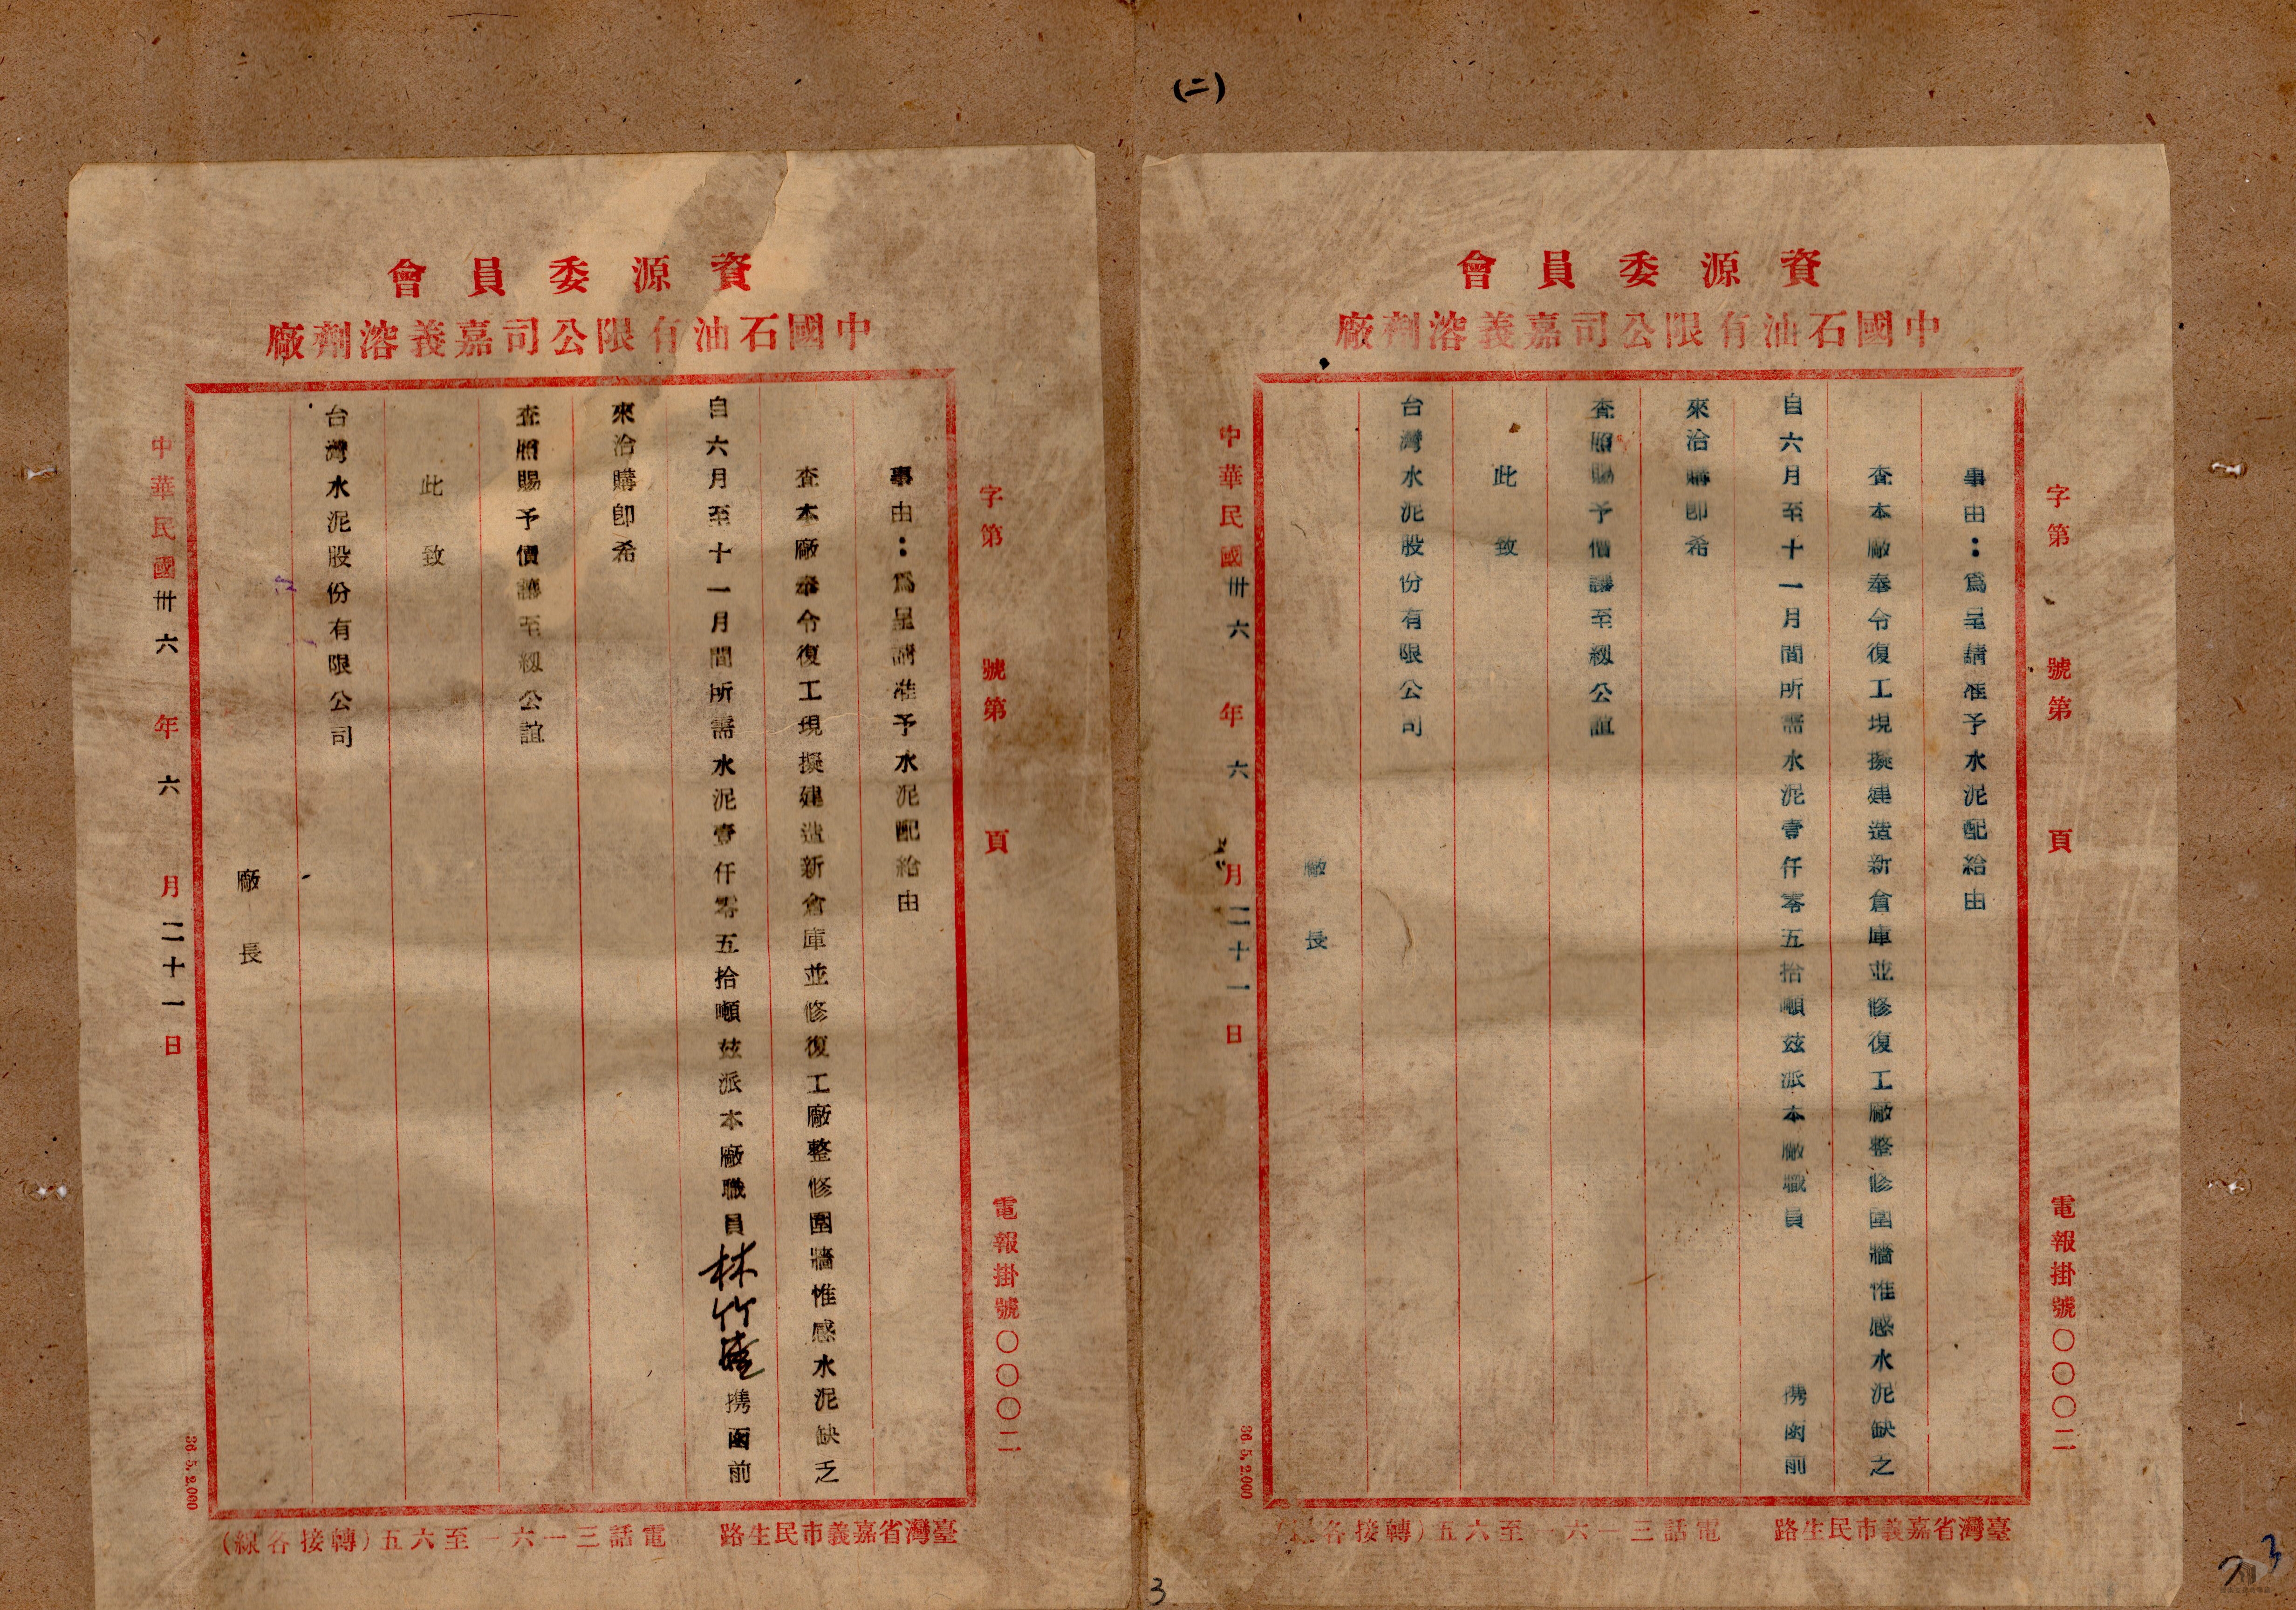 (二)
資源委員會
中國石油有限公司嘉義溶劑廠
字第 號第 頁
電報掛號〇〇〇二
事由：爲呈請准予水泥配給由
查本廠奉令復工現擬建造新倉庫並修復工廠整修圍牆惟感水泥缺乏
自六月至十一月間所需水泥壹仟零五拾噸茲派本廠職員 携函前
來洽購卽希
查照賜予價讓至級公誼
此致
台灣水泥股份有限公司
廠長
中華民國卅六年六月二十一日
36.5.2.000
臺灣省嘉義市民生路 電話三一六 至六五(轉接各線)
3
資源委員會
中國石油有限公司嘉義溶劑廠
字第 號第 頁
電報掛號〇〇〇二
事由：爲呈請准予水泥配給由
查本廠奉令復工現擬建造新倉庫並修復工廠整修圍牆惟感水泥缺乏
自六月至十一月間所需水泥壹仟零五拾噸茲派本廠職員林竹 携函前
來洽購卽希
查照賜予價讓至級公誼
此致
台灣水泥股份有限公司
廠長
中華民國卅六年六月二十一日
36.5.2.000
臺灣省嘉義市民生路 電話三一六一至六五(轉接各線)
3